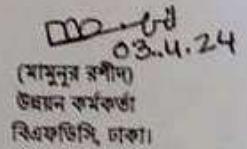 03.4.24
(মামুনুর রশীদ)
উন্নয়ন কর্মকর্তা
বিএফডিসি, ঢাকা।